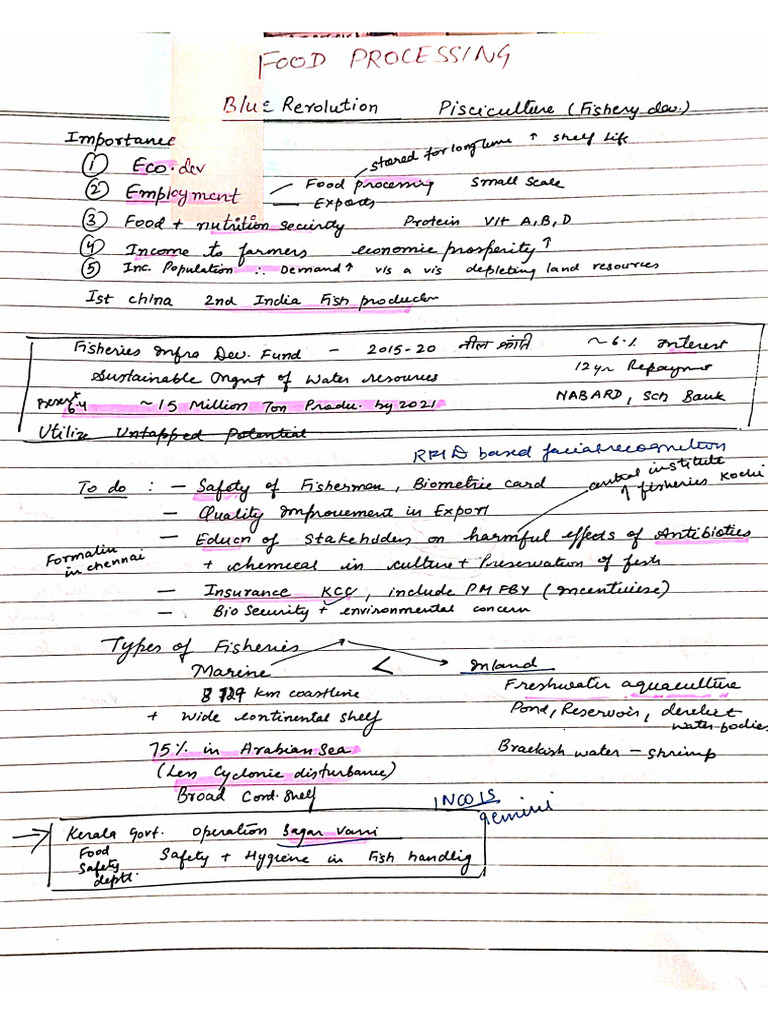 FOOD PROCESSING
Blue Revolution Pisciculture (Fishery dev.)
Importance
stored for long time ↑ shelf life
① Eco. dev
② Employment — Food processing small scale
— Exports
③ Food + nutrition security Protein Vit A, B, D
④ Income to farmers economic prosperity ↑
⑤ Inc. Population ∴ Demand ↑ vis a vis depleting land resources
Ist china 2nd India Fish producer
Fisheries Infra Dev. Fund – 2015-20 नील क्रांति ~ 6% Interest
Sustainable Mgmt of Water resources 12 yr Repayment
Present 6.4 ~ 15 Million Ton Produ. by 2021 NABARD, Sch Bank
Utilize Untapped Potential
RFID based facial recognition
To do : – Safety of Fisherman, Biometric card
central institute of fisheries Kochi
– Quality Improvement in Export
– Educn of Stakeholders on harmful effects of Antibiotics
Formalin in chennai
+ chemical in culture + Preservation of fish
– Insurance KCC, include PMFBY (Incentivise)
– Bio Security + environmental concern
Types of Fisheries
Marine < Inland
8129 km coastline
Freshwater aquaculture
+ wide continental shelf
Pond, Reservoir, derelict water bodies
75% in Arabian Sea
Brackish water – shrimp
(Less Cyclonic disturbance)
Broad Cont. Shelf
INCOIS
gemini
→ Kerala Govt. Operation Sagar Vani
Food Safety deptt. Safety + Hygiene in Fish handlig